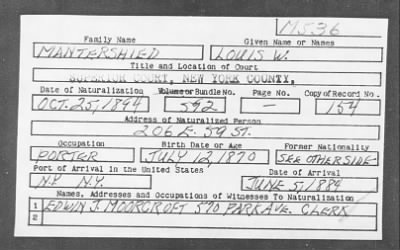 M536
Family Name Given Name or Names
MANTERSHIED LOUIS W.
Title and Location of Court
SUPERIOR COURT, NEW YORK COUNTY,
Date of Naturalization Volume or Bundle No. Page No. Copy of Record No.
OCT. 25, 1894 592 — 154
Address of Naturalized Person
206 E. 59 ST.
Occupation Birth Date or Age Former Nationality
PORTER JULY 12, 1870 SEE OTHERSIDE
Port of Arrival in the United States Date of Arrival
N.Y. N.Y. JUNE 5, 1884
Names, Addresses and Occupations of Witnesses To Naturalization
1 EDWIN J. MOORCROFT 570 PARK AVE. CLERK
2